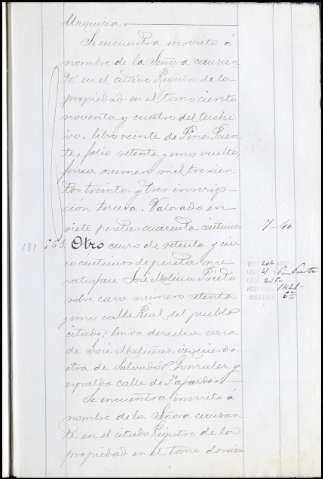 Urquiza
Se encuentra inscrito á
nombre de la Señora causan-
te en el citado Registro de la
propiedad en el tomo ciento
noventa y cuatro del Archi-
vo, libro veinte de Pinos Puen-
te, folio setenta y uno vuelto
finca numero mil trescien-
tos treinta y tres inscrip-
ción tercera. Valorado en
siete pesetas cuarenta centimos
7-40
181 Otro censo de setenta y cin-
co centimos de peseta que
paga José Molina Prieto
sobre casa numero setenta
y uno calle Real del pueblo
citado; linda derecha casa
de José Molina, izquierda
otra de Salvador Gonzalez y
espalda calle de
Se encuentra inscrito á
nombre de la Señora causan-
te en el citado Registro de la
propiedad en el tomo doscien